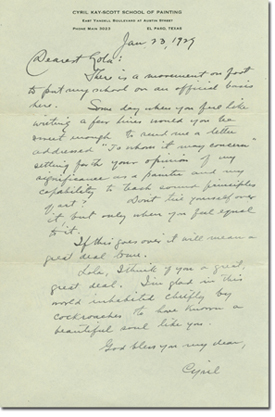 CYRIL KAY-SCOTT SCHOOL OF PAINTING
EAST YANDELL BOULEVARD AT AUSTIN STREET
EL PASO, TEXAS
Jan 23, 1929
Dearest Lola:
There is a movement on foot
to put my school on an official basis
here. Some day when you feel like
writing a few lines would you be
sweet enough to send me a letter
addressed "To whom it may concern"
setting forth your opinion of my
significance as a painter and my
capability to teach sound principles
of art? Don't tie yourself over
it but only when you feel equal
to it.
If this goes over it will mean a
great deal to me.
Lola, I think of you a great,
great deal. I'm glad in this
world inhabited chiefly by
cockroaches to have known a
beautiful soul like you.
God bless you my dear,
Cyril